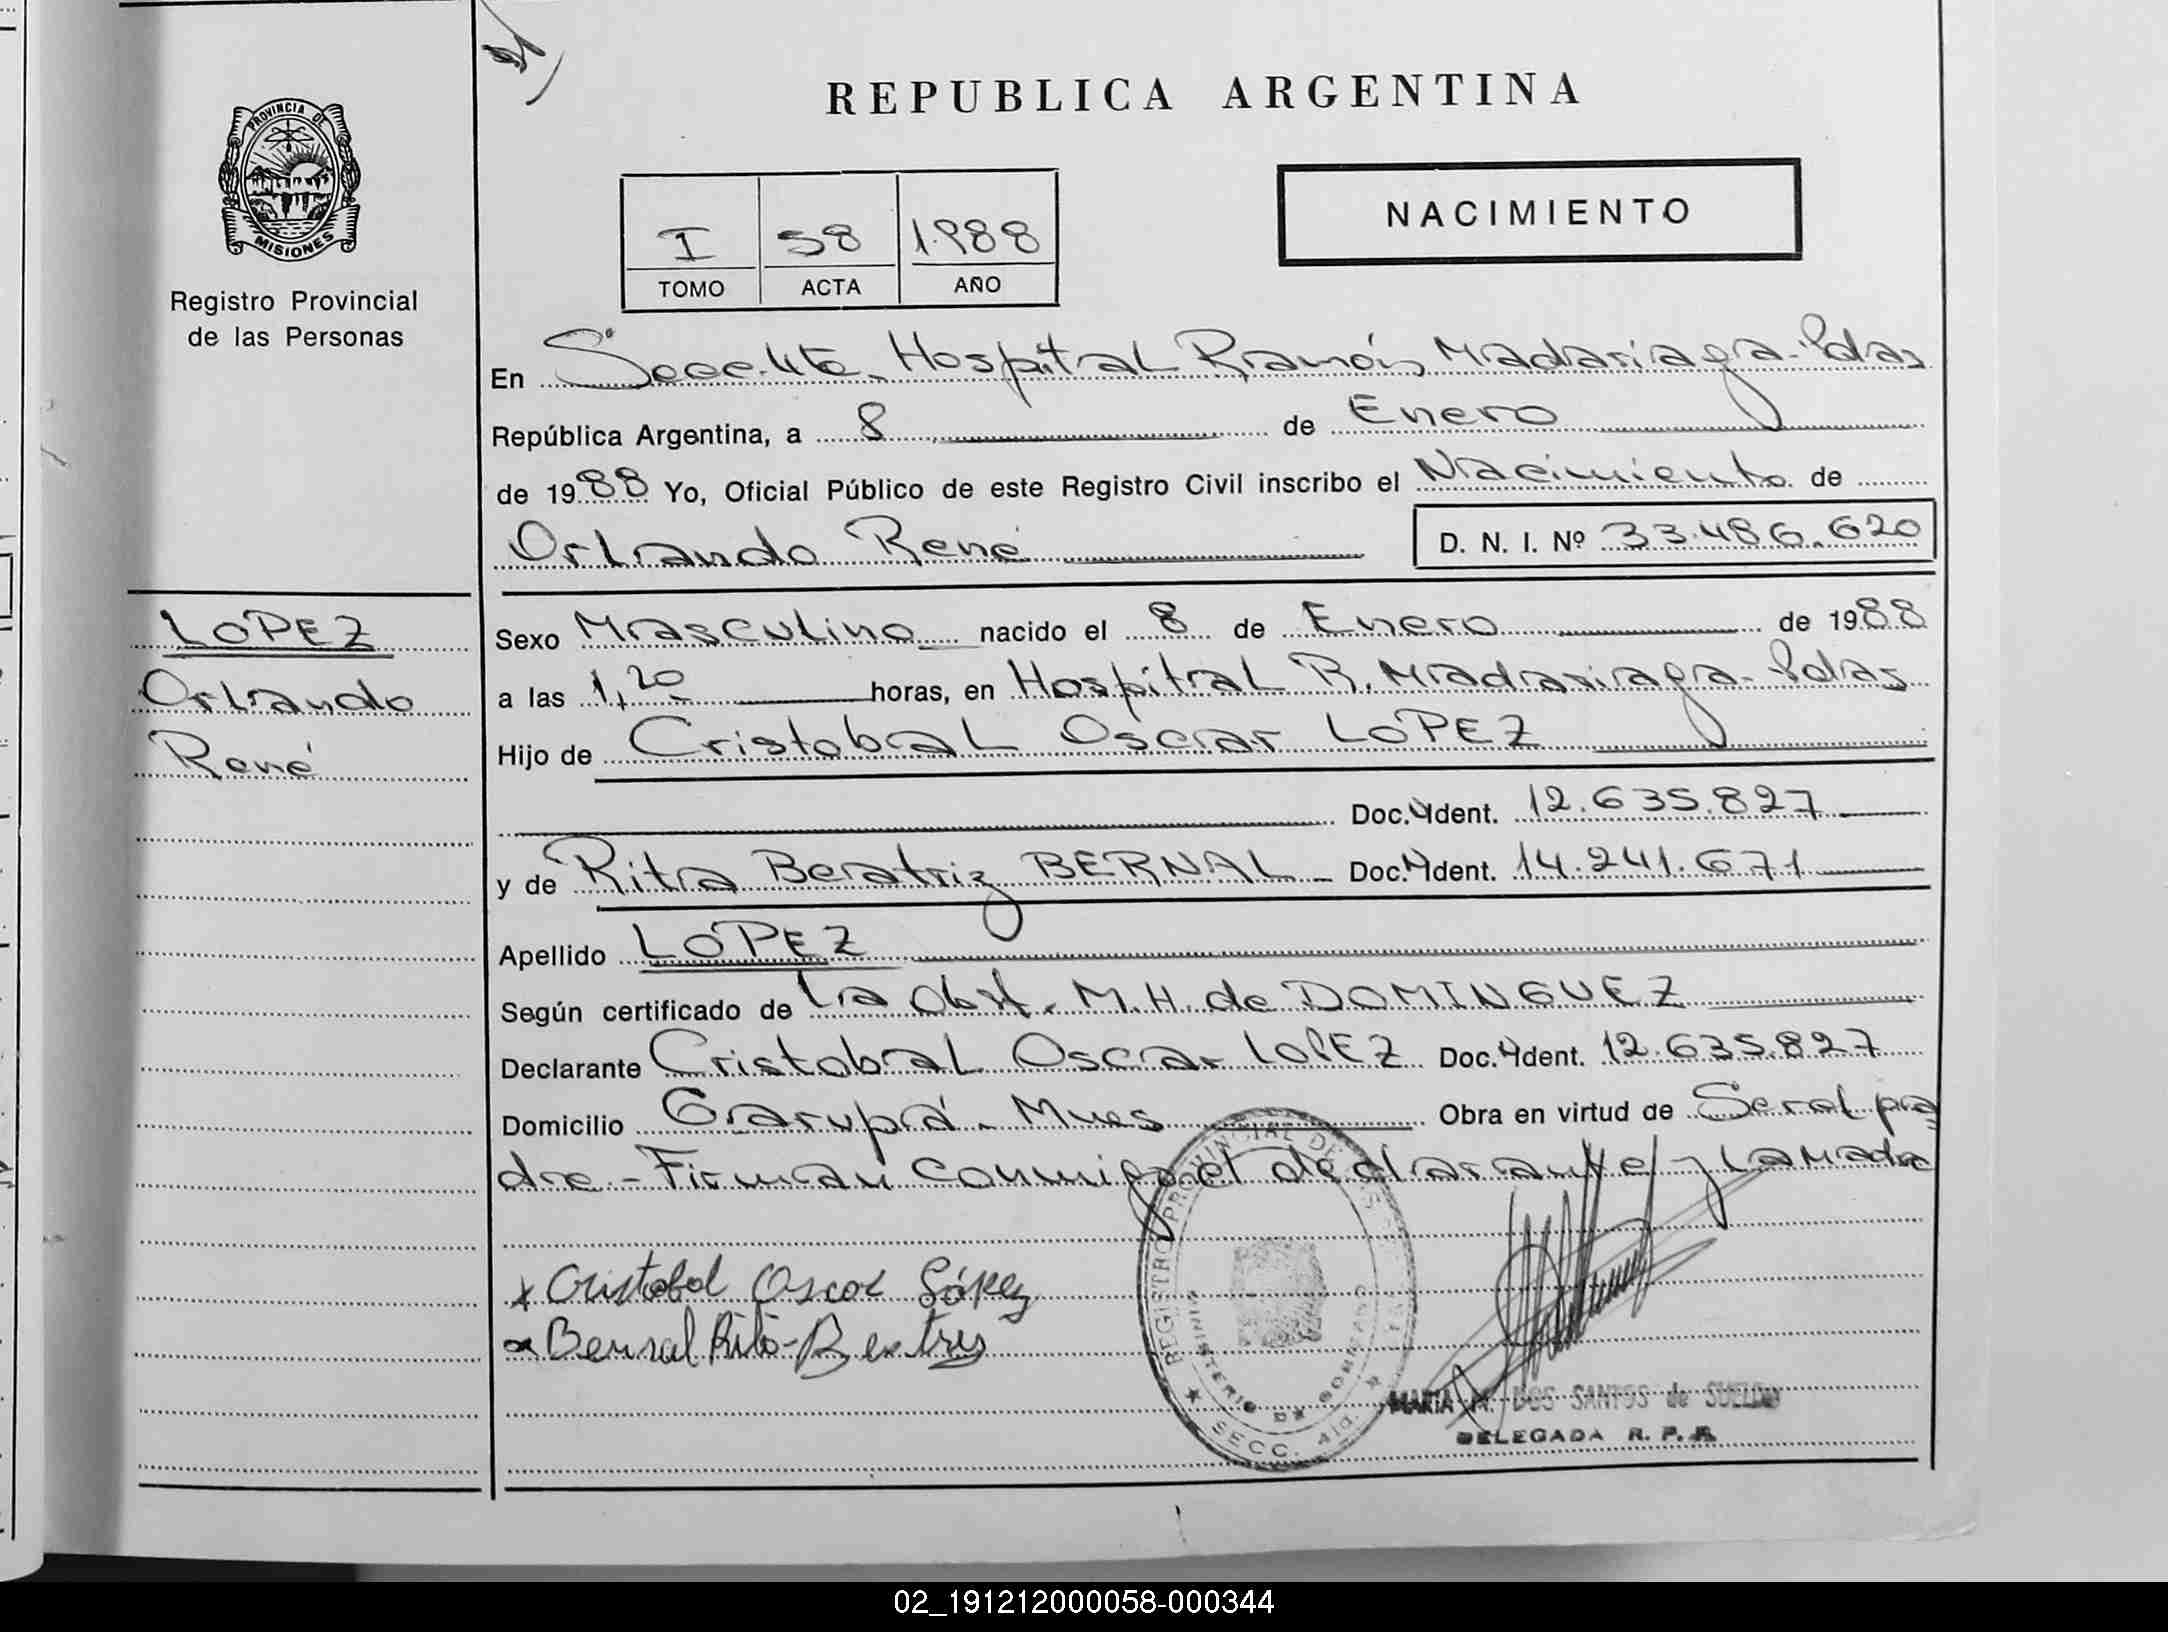 REPUBLICA ARGENTINA
PROVINCIA DE
MISIONES
Registro Provincial
de las Personas
I 58 1.988
TOMO ACTA AÑO
NACIMIENTO
En Secc. 4ta. Hospital Ramón Madariaga-Pdas
República Argentina, a 8 de Enero
de 1988 Yo, Oficial Público de este Registro Civil inscribo el Nacimiento de
Orlando René D. N. I. Nº 33.486.620
LOPEZ
Orlando
René
Sexo Masculino nacido el 8 de Enero de 1988
a las 1,20 horas, en Hospital R. Madariaga-Pdas
Hijo de Cristobal Oscar LOPEZ
Doc. Ident. 12.635.827
y de Rita Beatriz BERNAL - Doc. Ident. 14.241.671
Apellido LOPEZ
Según certificado de La Obst. M.H. de DOMINGUEZ
Declarante Cristobal Oscar LOPEZ Doc. Ident. 12.635.827
Domicilio Garupá - Mnes Obra en virtud de Ser el pa
dre - Firman conmigo el declarante y La Madre
x Cristobal Oscar López
x Bernal Rita Beatris
REGISTRO PROVINCIAL DE LAS
MINISTERIO DE GOBIERNO
SECC. 4ta.
MARIA DOS SANTOS de SUELDO
DELEGADA R. P. P.
02_191212000058-000344